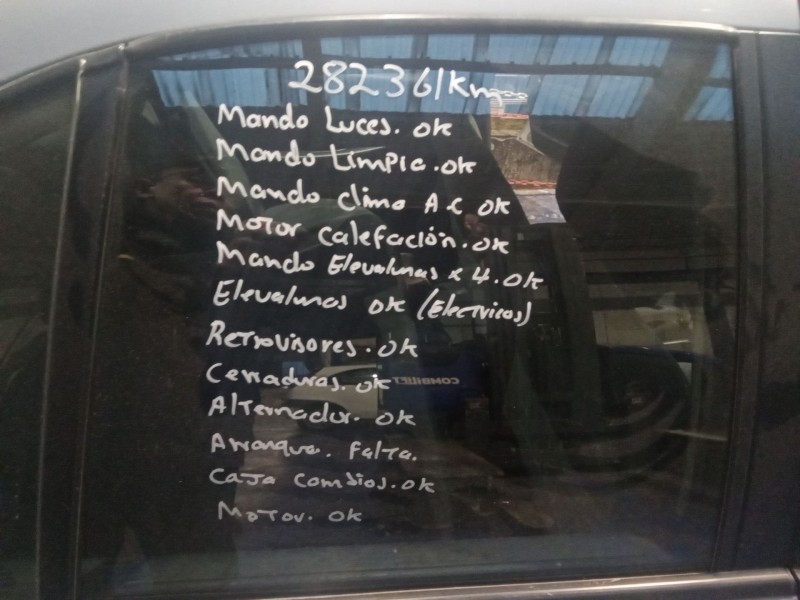 282361 Km
Mando Luces. ok
Mando Limpia. ok
Mando clima A.C ok
Motor calefación. ok
Mando Elevalunas x 4. ok
Elevalunas ok (Electricos)
Retrovisores. ok
Cerraduras. ok
COMBILIFT
Alternador. ok
Arranque. Falta.
Caja Cambios. ok
Motor. ok